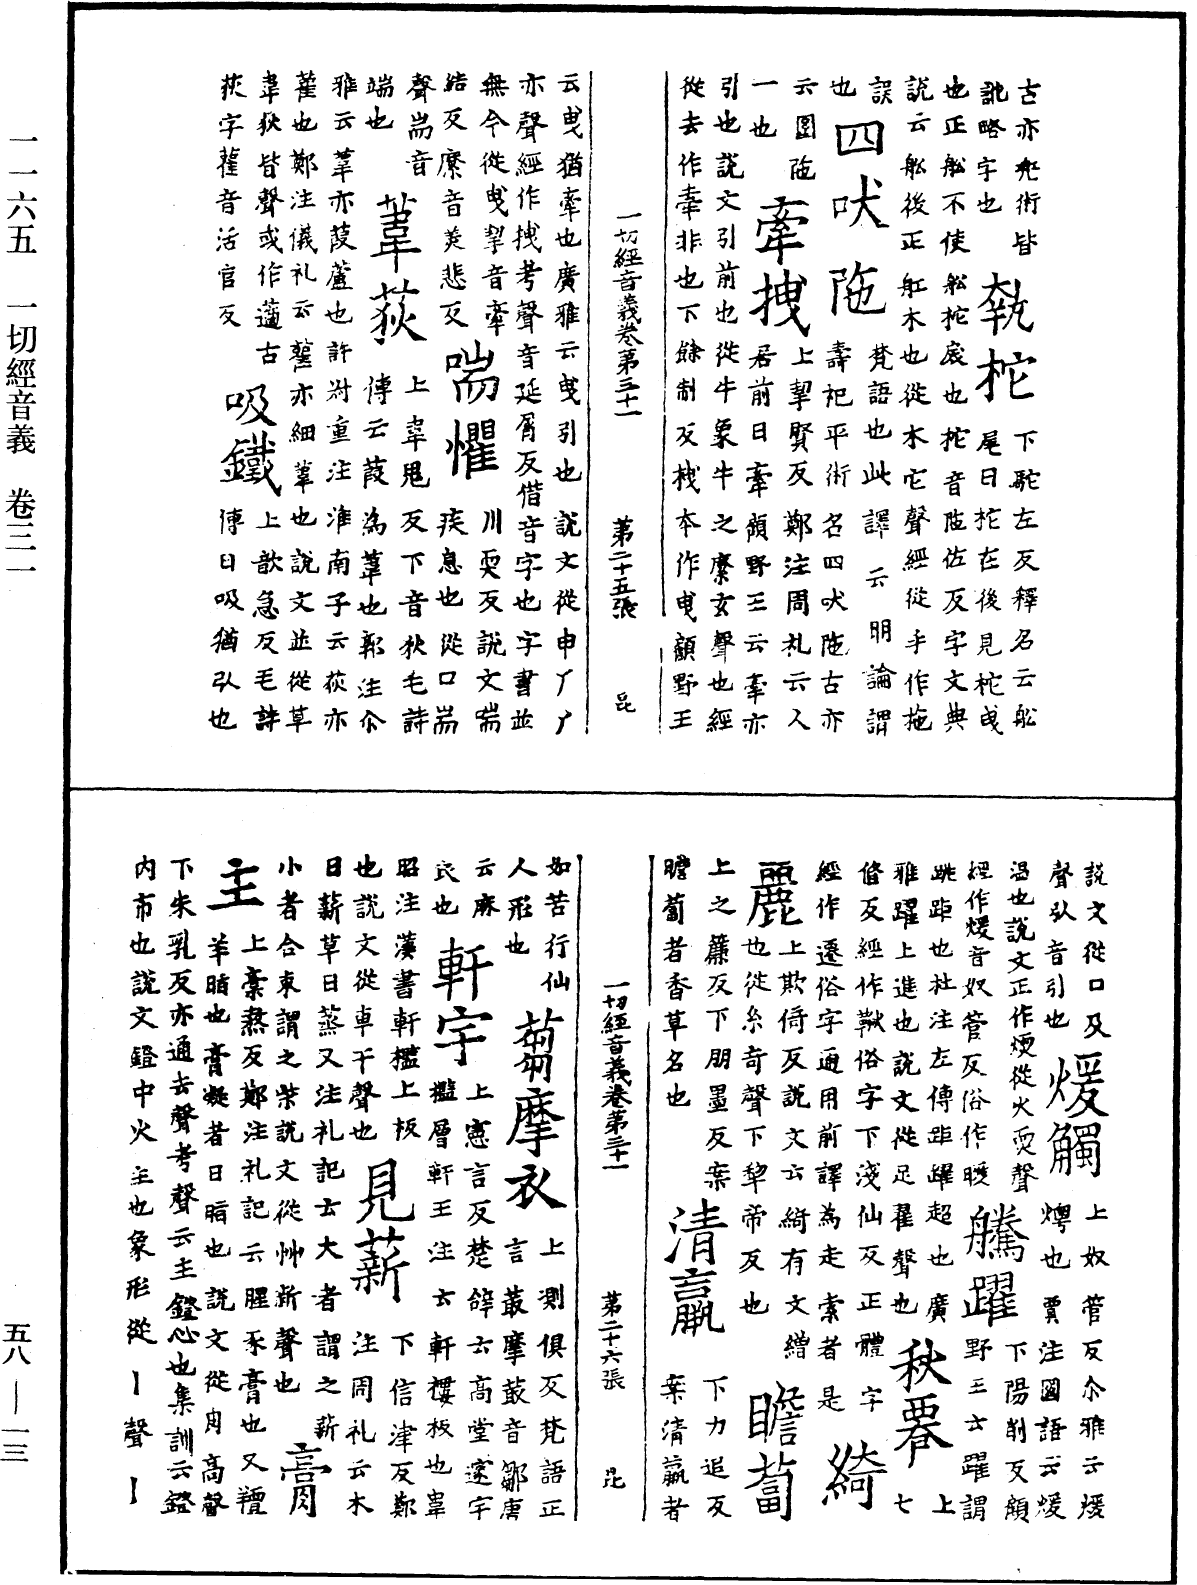 一一六五 一切經音義 卷三一
五八—一三
古亦咒術皆
訛略字也 執柁 下駝左反釋名云船尾曰柁在後見柁曳
也正船不使船柁戾也柁音陁佐反字文典
說云船後正舡木也從木它聲經從手作拖
誤也 四吠陁 梵語也此譯云明論謂壽祀平術名四吠陁古亦
云圍陁
一也 牽拽 上挈賢反鄭注周礼云人居前曰牽顧野王云牽亦
引也說文引前也從牛象牛之縻玄聲也經
從去作牽非也下餘制反栈本作曳顧野王
一切經音義卷第三十一 第二十五張 昆
云曳猶牽也廣雅云曳引也說文從申丿丿
亦聲經作拽考聲音延屑反借音字也字書並
無今從曳挈音牽
結反縻音美悲反 喘懼 川耎反說文喘疾息也從口耑
聲耑音
端也 葦荻 上韋鬼反下音狄毛詩傳云葭為葦也郭注尒
雅云葦亦葭蘆也許对重注淮南子云荻亦
雈也鄭注儀礼云雚亦細葦也說文並從草
韋狄皆聲或作藡古
荻字雚音活官反 吸鐵 上歆急反毛詩傳曰吸猶弘也
說文從口及
聲弘音引也 煗觸 上奴管反尒雅云煖燠也賈注國語云煖
温也說文正作煗從火耎聲
經作煖音奴管反俗作暖 騰躍 下陽削反顧野王云躍謂
跳距也杜注左傳距躍超也廣
雅躍上進也說文從足翟聲也 秋罯 上七
脩反經作鞦俗字下淺仙反正體字
經作遷俗字通用前譯為走索者是 綺
麗 上欺倚反說文云綺有文繒也從糸奇聲下犂帝反也
上之簾反下朋墨反案 清羸 下力追反案清羸者 瞻蔔
瞻蔔者香草名也
一切經音義卷第三十一 第二十六張 昆
如苦行仙
人形也 蒭摩衣 上測俱反梵語正言蒭摩蒭音鄒唐
云麻
衣也 軒宇 上憲言反楚辝云高堂邃宇檻層軒王注云軒樓板也韋
昭注漢書軒檻上板
也說文從車干聲也 見薪 下信津反鄭注周礼云木
曰薪草曰蒸又注礼記云大者謂之薪
小者合束謂之柴說文從艸新聲也 膏
主 上槀熬反鄭注礼記云腥豕膏也又羶羊脂也膏凝者曰脂也說文從肉高聲
下朱乳反亦通去聲考聲云主鐙心也集訓云鐙
内市也說文鐙中火主也象形從丨聲丨